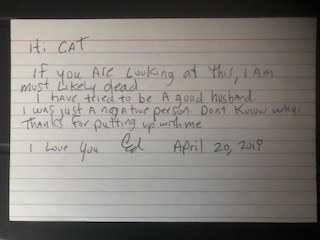 Hi CAT
If you Are Looking at This, I Am
most Likely dead
I have tried to be A good husband.
I was just A negative person. Dont Know why.
Thanks for putting up with me
I Love you Ed April 20, 2019